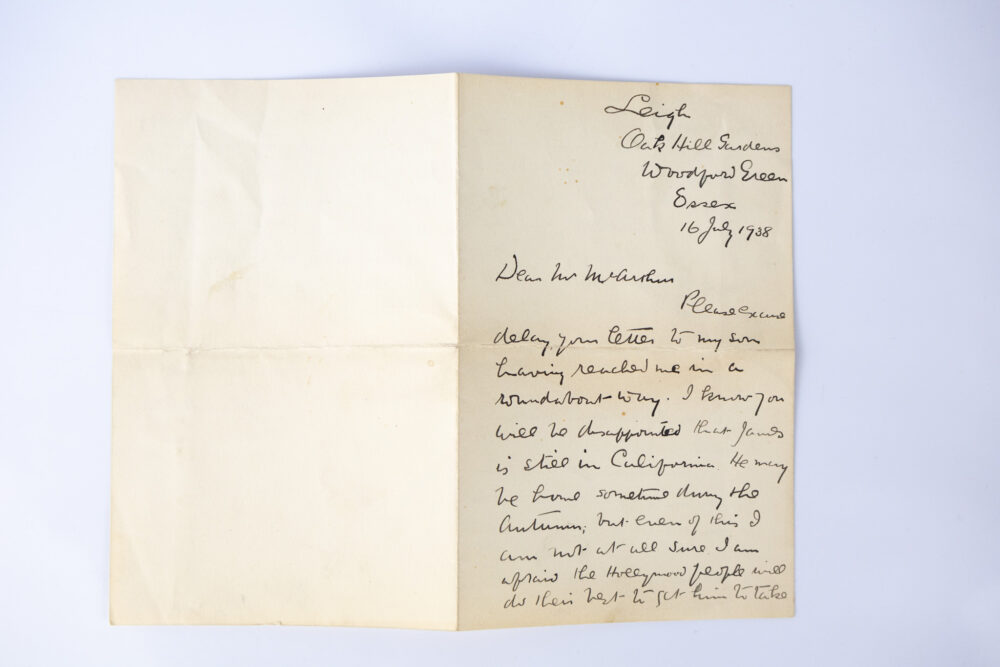 Leigh
Oak Hill Gardens
Woodford Green
Essex
16 July 1938
Dear Mr McArthur
Please excuse
delay, your letter to my son
having reached me in a
roundabout way. I know you
will be disappointed that James
is still in California. He may
be home sometime during the
Autumn; but even of this I
am not at all sure I am
afraid the Hollywood people will
do their best to get him to take